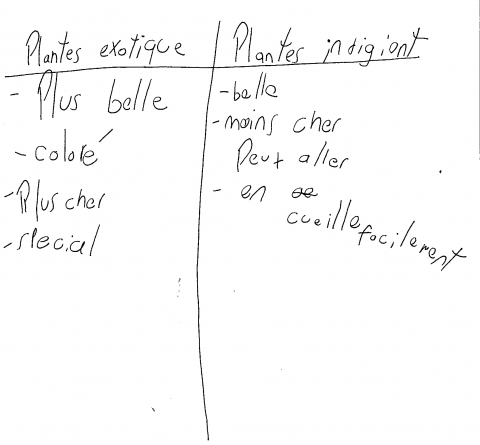 Plantes exotique
- Plus belle
- coloré
- Plus cher
- special
Plantes indigiont
- belle
- moins cher
Peut aller
- en
cueille facilement